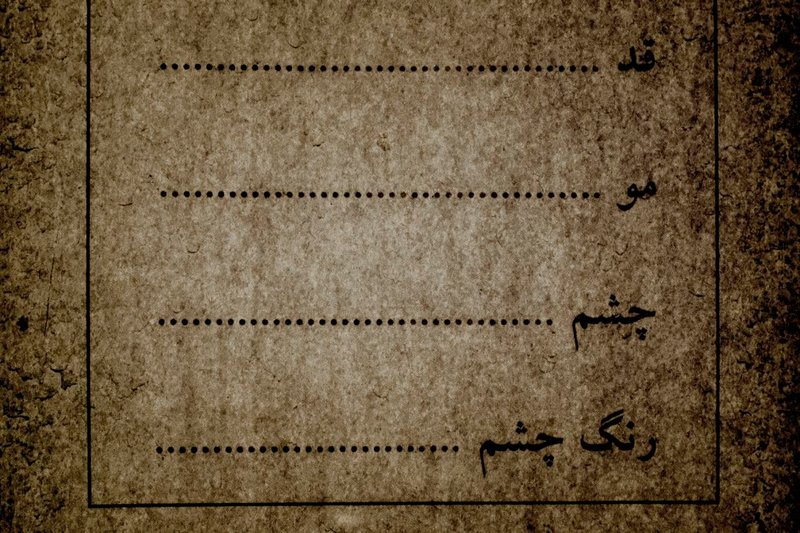 قد ........................................
مو ........................................
چشم ...................................
رنگ چشم ...........................